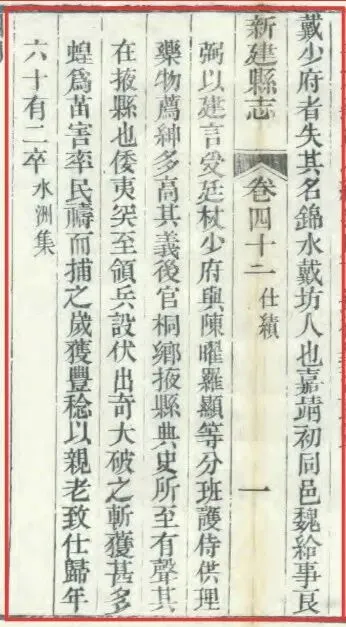 戴少府者失其名錦水戴坊人也嘉靖初同邑魏給事良
新建縣志 卷四十二 仕績 一
弼以建言受廷杖少府與陳曜羅顯等分班護侍供理
藥物薦紳多高其義後官桐鄉掖縣典史所至有聲其
在掖縣也倭夷突至領兵設伏出奇大破之斬獲甚多
蝗爲苗害率民禱而捕之歲獲豐稔以親老致仕歸年
六十有二卒 水洲集